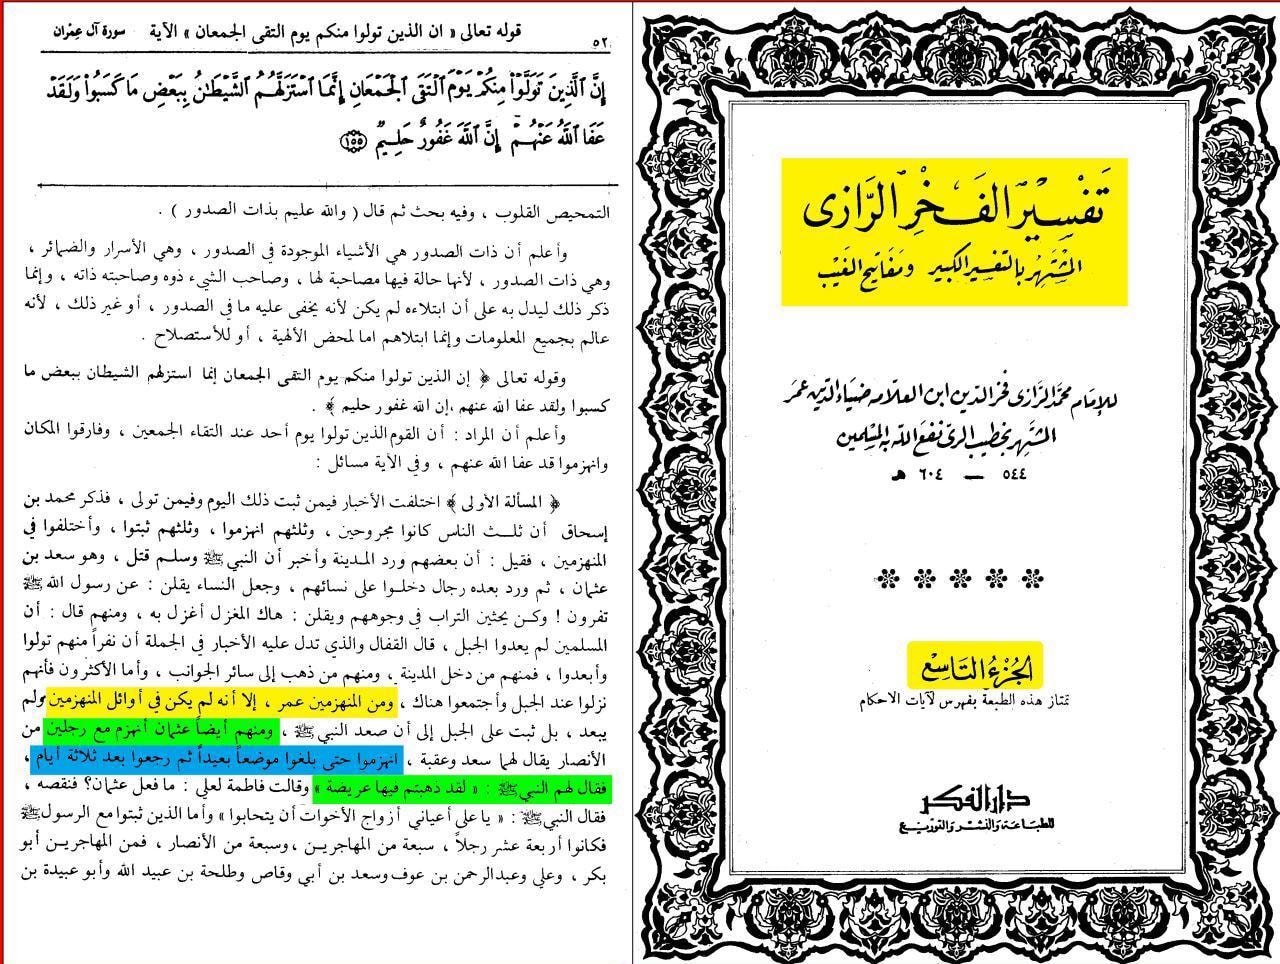 تَفْسِيْر الفَخْرِ الرَّازى
المشتهر بالتفسير الكبير ومفاتيح الغيب
للإمام محمد الرازى فخر الدين ابن العلامه ضياء الدين عمر
المشتهر بخطيب الرى نفع الله به المسلمين
٥٤٤ — ٦٠٤ هـ
الجزء التاسع
تمتاز هذه الطبعة بفهرس لآيات الاحكام
دار الفكر
للطباعة والنشر والتوزيع
قوله تعالى « ان الذين تولوا منكم يوم التقى الجمعان » الآية سورة آل عمران
٥٢
إِنَّ ٱلَّذِينَ تَوَلَّوْا۟ مِنكُمْ يَوْمَ ٱلْتَقَى ٱلْجَمْعَانِ إِنَّمَا ٱسْتَزَلَّهُمُ ٱلشَّيْطَـٰنُ بِبَعْضِ مَا كَسَبُوا۟ وَلَقَدْ
عَفَا ٱللَّهُ عَنْهُمْ إِنَّ ٱللَّهَ غَفُورٌ حَلِيمٌ ١٥٥
التمحيص القلوب ، وفيه بحث ثم قال ( والله عليم بذات الصدور ) .
وأعلم أن ذات الصدور هي الأشياء الموجودة في الصدور ، وهي الأسرار والضمائر ،
وهي ذات الصدور ، لأنها حالة فيها مصاحبة لها ، وصاحب الشيء ذوه وصاحبته ذاته ، وإنما
ذكر ذلك ليدل به على أن ابتلاءه لم يكن لأنه يخفى عليه ما في الصدور ، أو غير ذلك ، لأنه
عالم بجميع المعلومات وإنما ابتلاهم اما لمحض الألهية ، أو للأستصلاح .
وقوله تعالى ﴿ إن الذين تولوا منكم يوم التقى الجمعان إنما استزلهم الشيطان ببعض ما
كسبوا ولقد عفا الله عنهم ،إن الله غفور حليم ﴾ .
وأعلم أن المراد : أن القوم الذين تولوا يوم أحد عند التقاء الجمعين ، وفارقوا المكان
وانهزموا قد عفا الله عنهم ، وفي الآية مسائل :
﴿ المسألة الأولى ﴾ اختلفت الأخبار فيمن ثبت ذلك اليوم وفيمن تولى ، فذكر محمد بن
إسحاق أن ثلث الناس كانوا مجروحين ، وثلثهم انهزموا ، وثلثهم ثبتوا ، وأختلفوا في
المنهزمين ، فقيل : أن بعضهم ورد المدينة وأخبر أن النبي ﷺ وسلم قتل ، وهو سعد بن
عثمان ، ثم ورد بعده رجال دخلوا على نسائهم ، وجعل النساء يقلن : عن رسول الله ﷺ
تفرون ! وكن يحثين التراب في وجوههم ويقلن : هاك المغزل أغزل به ، ومنهم قال : أن
المسلمين لم يعدوا الجبل ، قال القفال والذي تدل عليه الأخبار في الجملة أن نفراً منهم تولوا
وأبعدوا ، فمنهم من دخل المدينة ، ومنهم من ذهب إلى سائر الجوانب ، وأما الأكثرون فأنهم
نزلوا عند الجبل وأجتمعوا هناك ، ومن المنهزمين عمر ، إلا أنه لم يكن في أوائل المنهزمين ولم
يبعد ، بل ثبت على الجبل إلى أن صعد النبي ﷺ ، ومنهم أيضاً عثمان أنهزم مع رجلين من
الأنصار يقال لهما سعد وعقبة ، انهزموا حتى بلغوا موضعاً بعيداً ثم رجعوا بعد ثلاثة أيام ،
فقال لهم النبي ﷺ : « لقد ذهبتم فيها عريضة » وقالت فاطمة لعلي : ما فعل عثمان؟ فنقصه ،
فقال النبي ﷺ : « يا علي أعياني أزواج الأخوات أن يتحابوا » وأما الذين ثبتوا مع الرسول ﷺ
فكانوا أربعة عشر رجلاً ، سبعة من المهاجرين ، وسبعة من الأنصار ، فمن المهاجرين أبو
بكر ، وعلي وعبدالرحمن بن عوف وسعد بن أبي وقاص وطلحة بن عبيد الله وأبو عبيدة بن